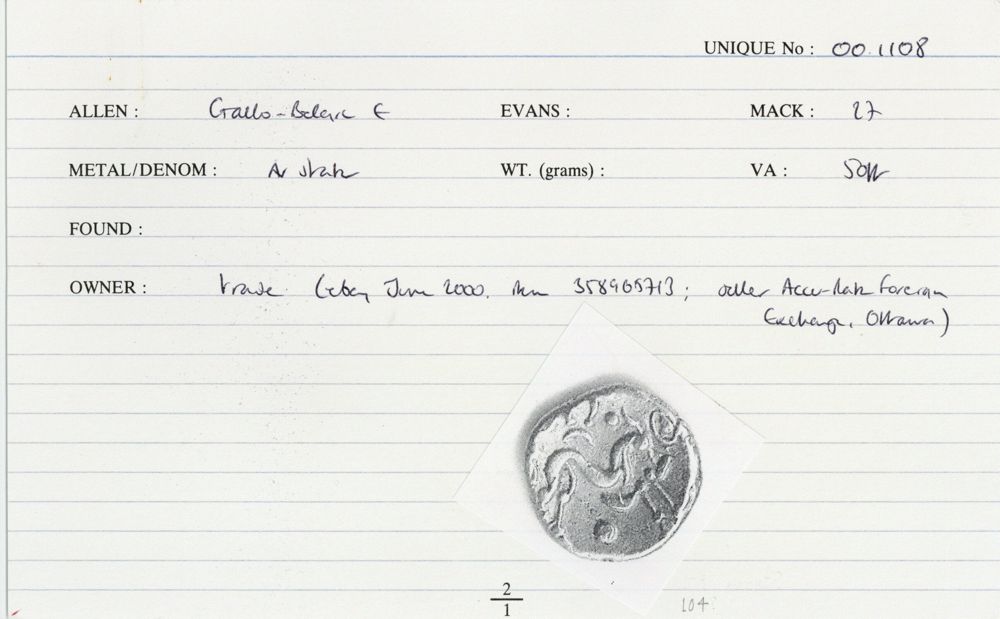 UNIQUE No : 00.1108
ALLEN : Gallo-Belgic E EVANS : MACK : 27
METAL/DENOM : AV stater WT. (grams) : VA :
FOUND :
OWNER : trade (ebay June 2000. item 358965713; seller Accu-Rate Foreign
Exchange, Ottawa)
2
1
104